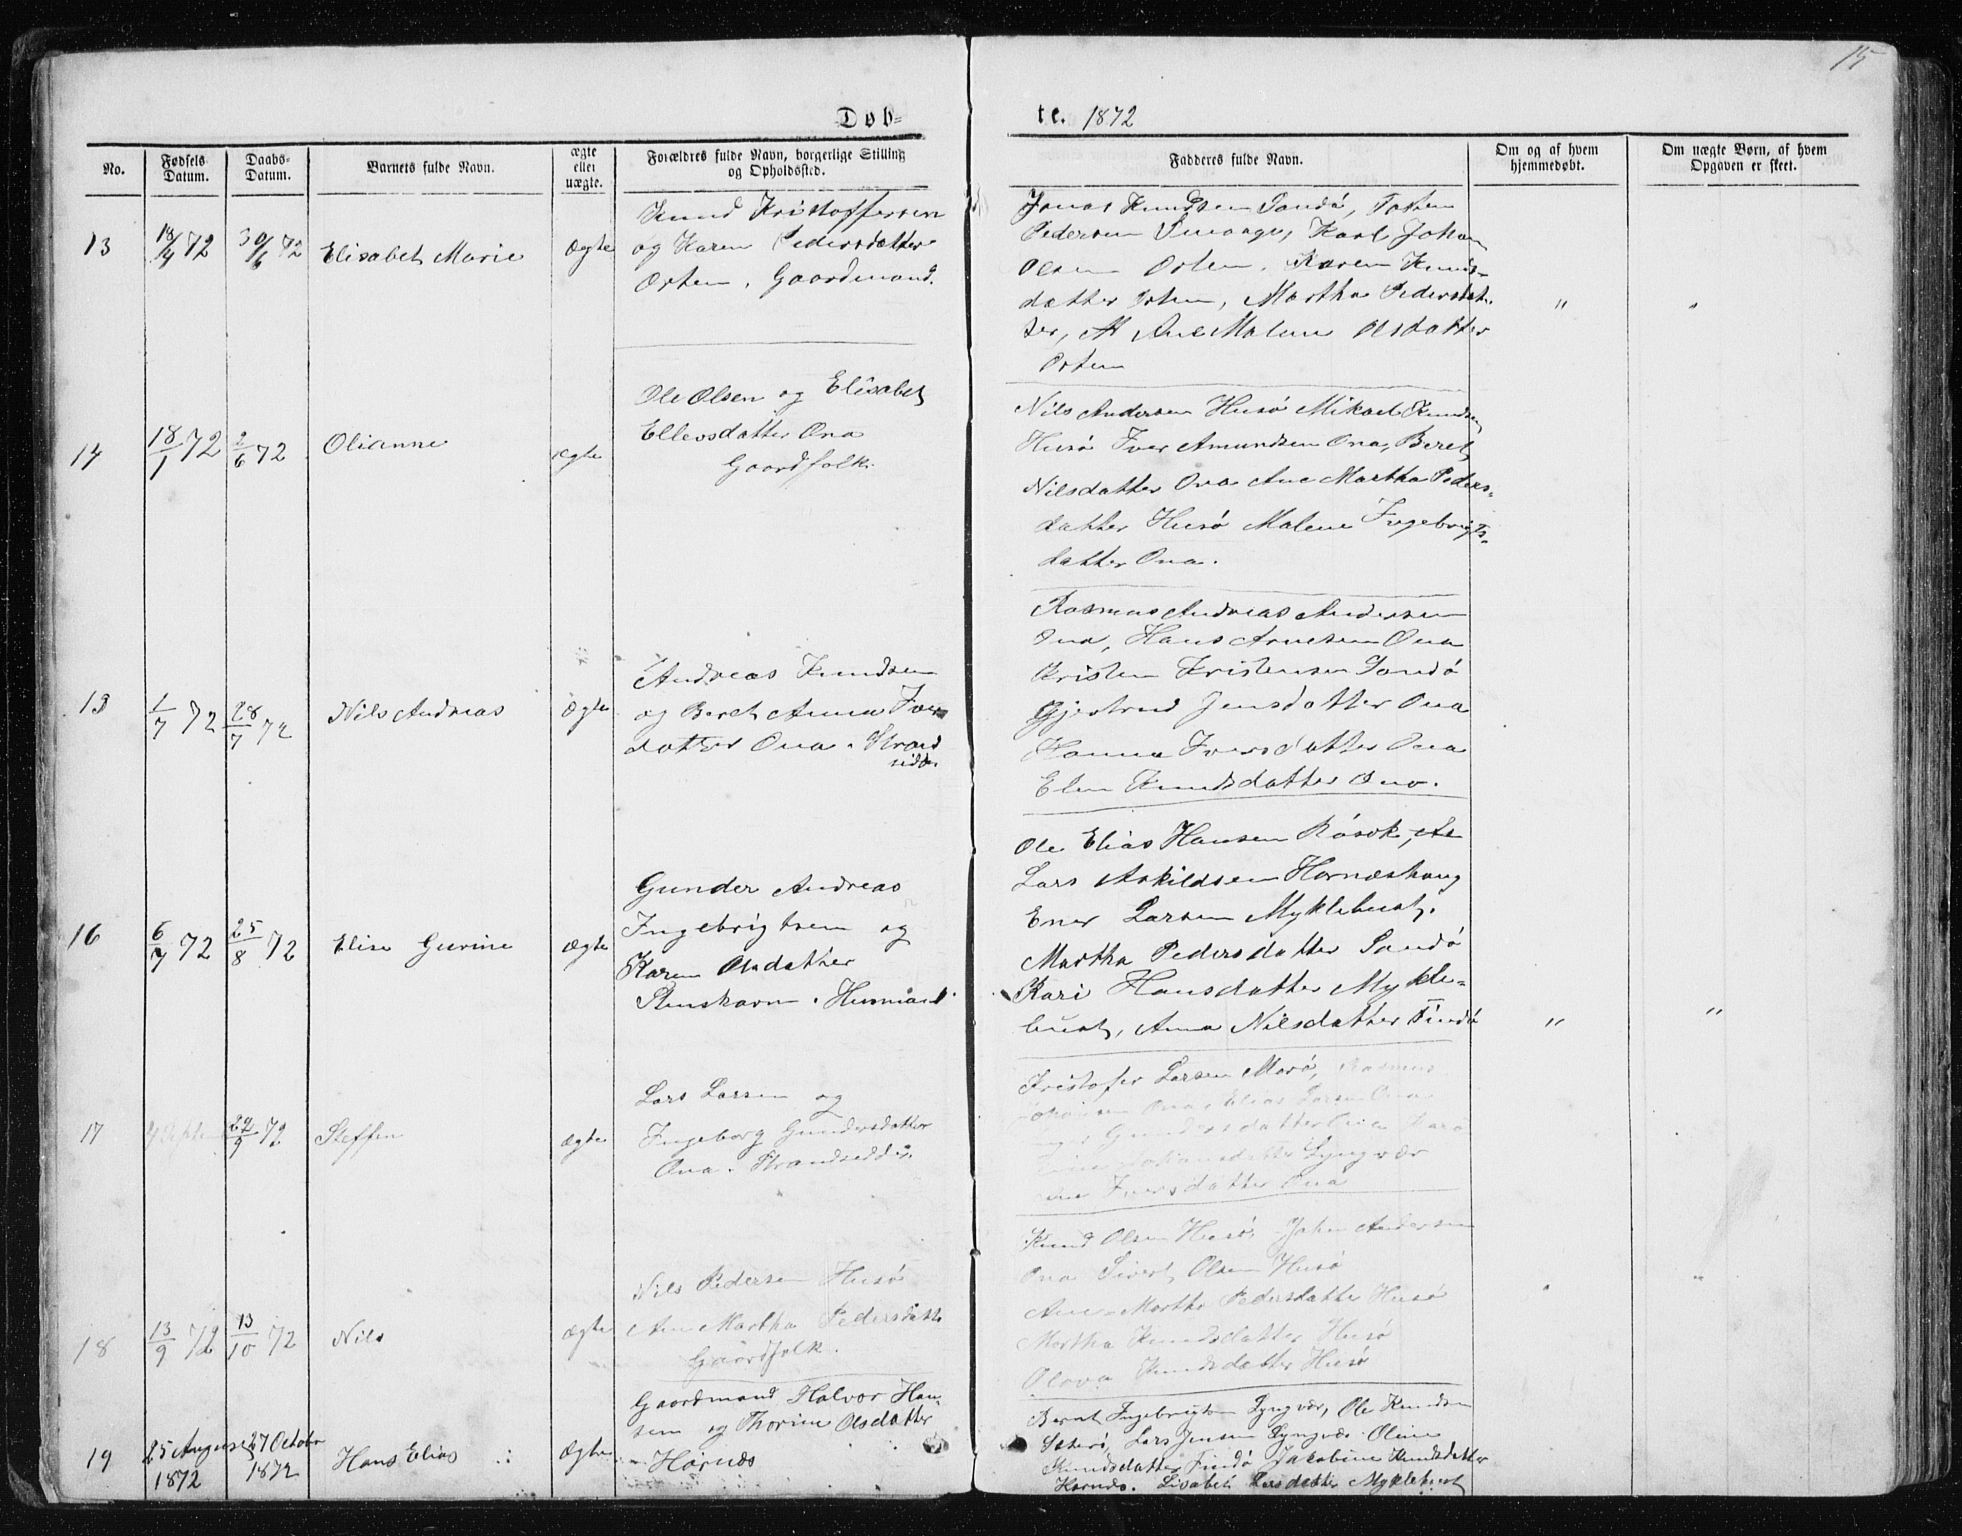 15
Døb=
te. 1872
No.
Fødsels
Datum.
Daabs=
Datum.
Barnets fulde Navn.
ægte
eller
uægte.
Forældres fulde Navn, borgerlige Stilling
og Opholdssted.
Fadderes fulde Navn.
Om og af hvem
hjemmedøbt.
Om uægte Børn, af hvem
Opgaven er skeet.
13
18/4 72
30/6 72
Elisabet Marie
Ægte
Knud Kristoffersen
og Karen Pedersdatter
Orten, Gaardmand.
Jonas Knudsen Sandö,
Pedersen Karl Johan
Olsen Orten, Karen Knuds-
datter Orten, Martha Pedersdat-
ter, Ane Malene Olsdatter
Orten
"
"
14
18/1 72
2/6 72
Olianne
ægte
Ole Olsen og Elisabet
Ellevsdatter Ona
Gaardfolk.
Nils Andersen Husö Mikael Knudsen
Husö Iver Amundsen Ona, Beret
Nilsdatter Ona Ane Martha Peders-
datter Husö Malene Ingebrigts-
datter Ona.
13
1/7 72
28/7 72
Nils Andreas
Ægte
Andreas Knudsen
og Beret Anna Iver
datter Ona. Strand
sidder
Rasmus Andreas Andersen
Ona, Hans Arnesen Ona
Kristen Kristensen Sandö
Gjertrud Jensdatter Ona
Hanna Iversdatter Ona
Elen Knudsdatter Ona.
16
6/7 72
25/8 72
Elise Gurine
Ægte
Gunder Andreas
Ingebrigtsen og
Karen Olsdatter
Stenshavn. Husmand.
Ole Elias Hansen Rösok,
Lars Askildsen Harnæshaug
Ener Larsen Myklebust.
Martha Pedersdatter Sandö
Kari Hansdatter Mykle-
bust, Anna Nilsdatter Findö
"
"
17
22/9 72
Steffen
ægte
Lars Larsen og
Ingeborg Gundersdatter
Ona. Strandsidder.
Kristofer Larsen Morö, Rasmus
Ona, Elias Larsen Ona
Gundersdatter
Lyngvær
Iversdatter Ona
18
13/9 72
13/10 72
Nils
Ægte
Nils Pedersen Husö
Ane Martha Pedersdatt
Gaardfolk.
Knud Olsen Husö, Johan Andersen
Ona Sivert Olsen Husö
Ane Martha Pedersdatter Husö
Martha Knudsdatter Husö
Olava Knudsdatter Husö
"
"
19
25 August
1872
27 Octobr
1872
Hans Elias
Ægte
Gaardmand Halvor Han-
sen og Thorine Olsdatter
Harnæs
Bernt Ingebrigtsen Lyngvær, Ole Knudsen
Lars Jensen Lyngvær Oline
Knudsdatter Findö Jakobine Knudsdatter
Harnæs. Lisabet Larsdatter Myklebust